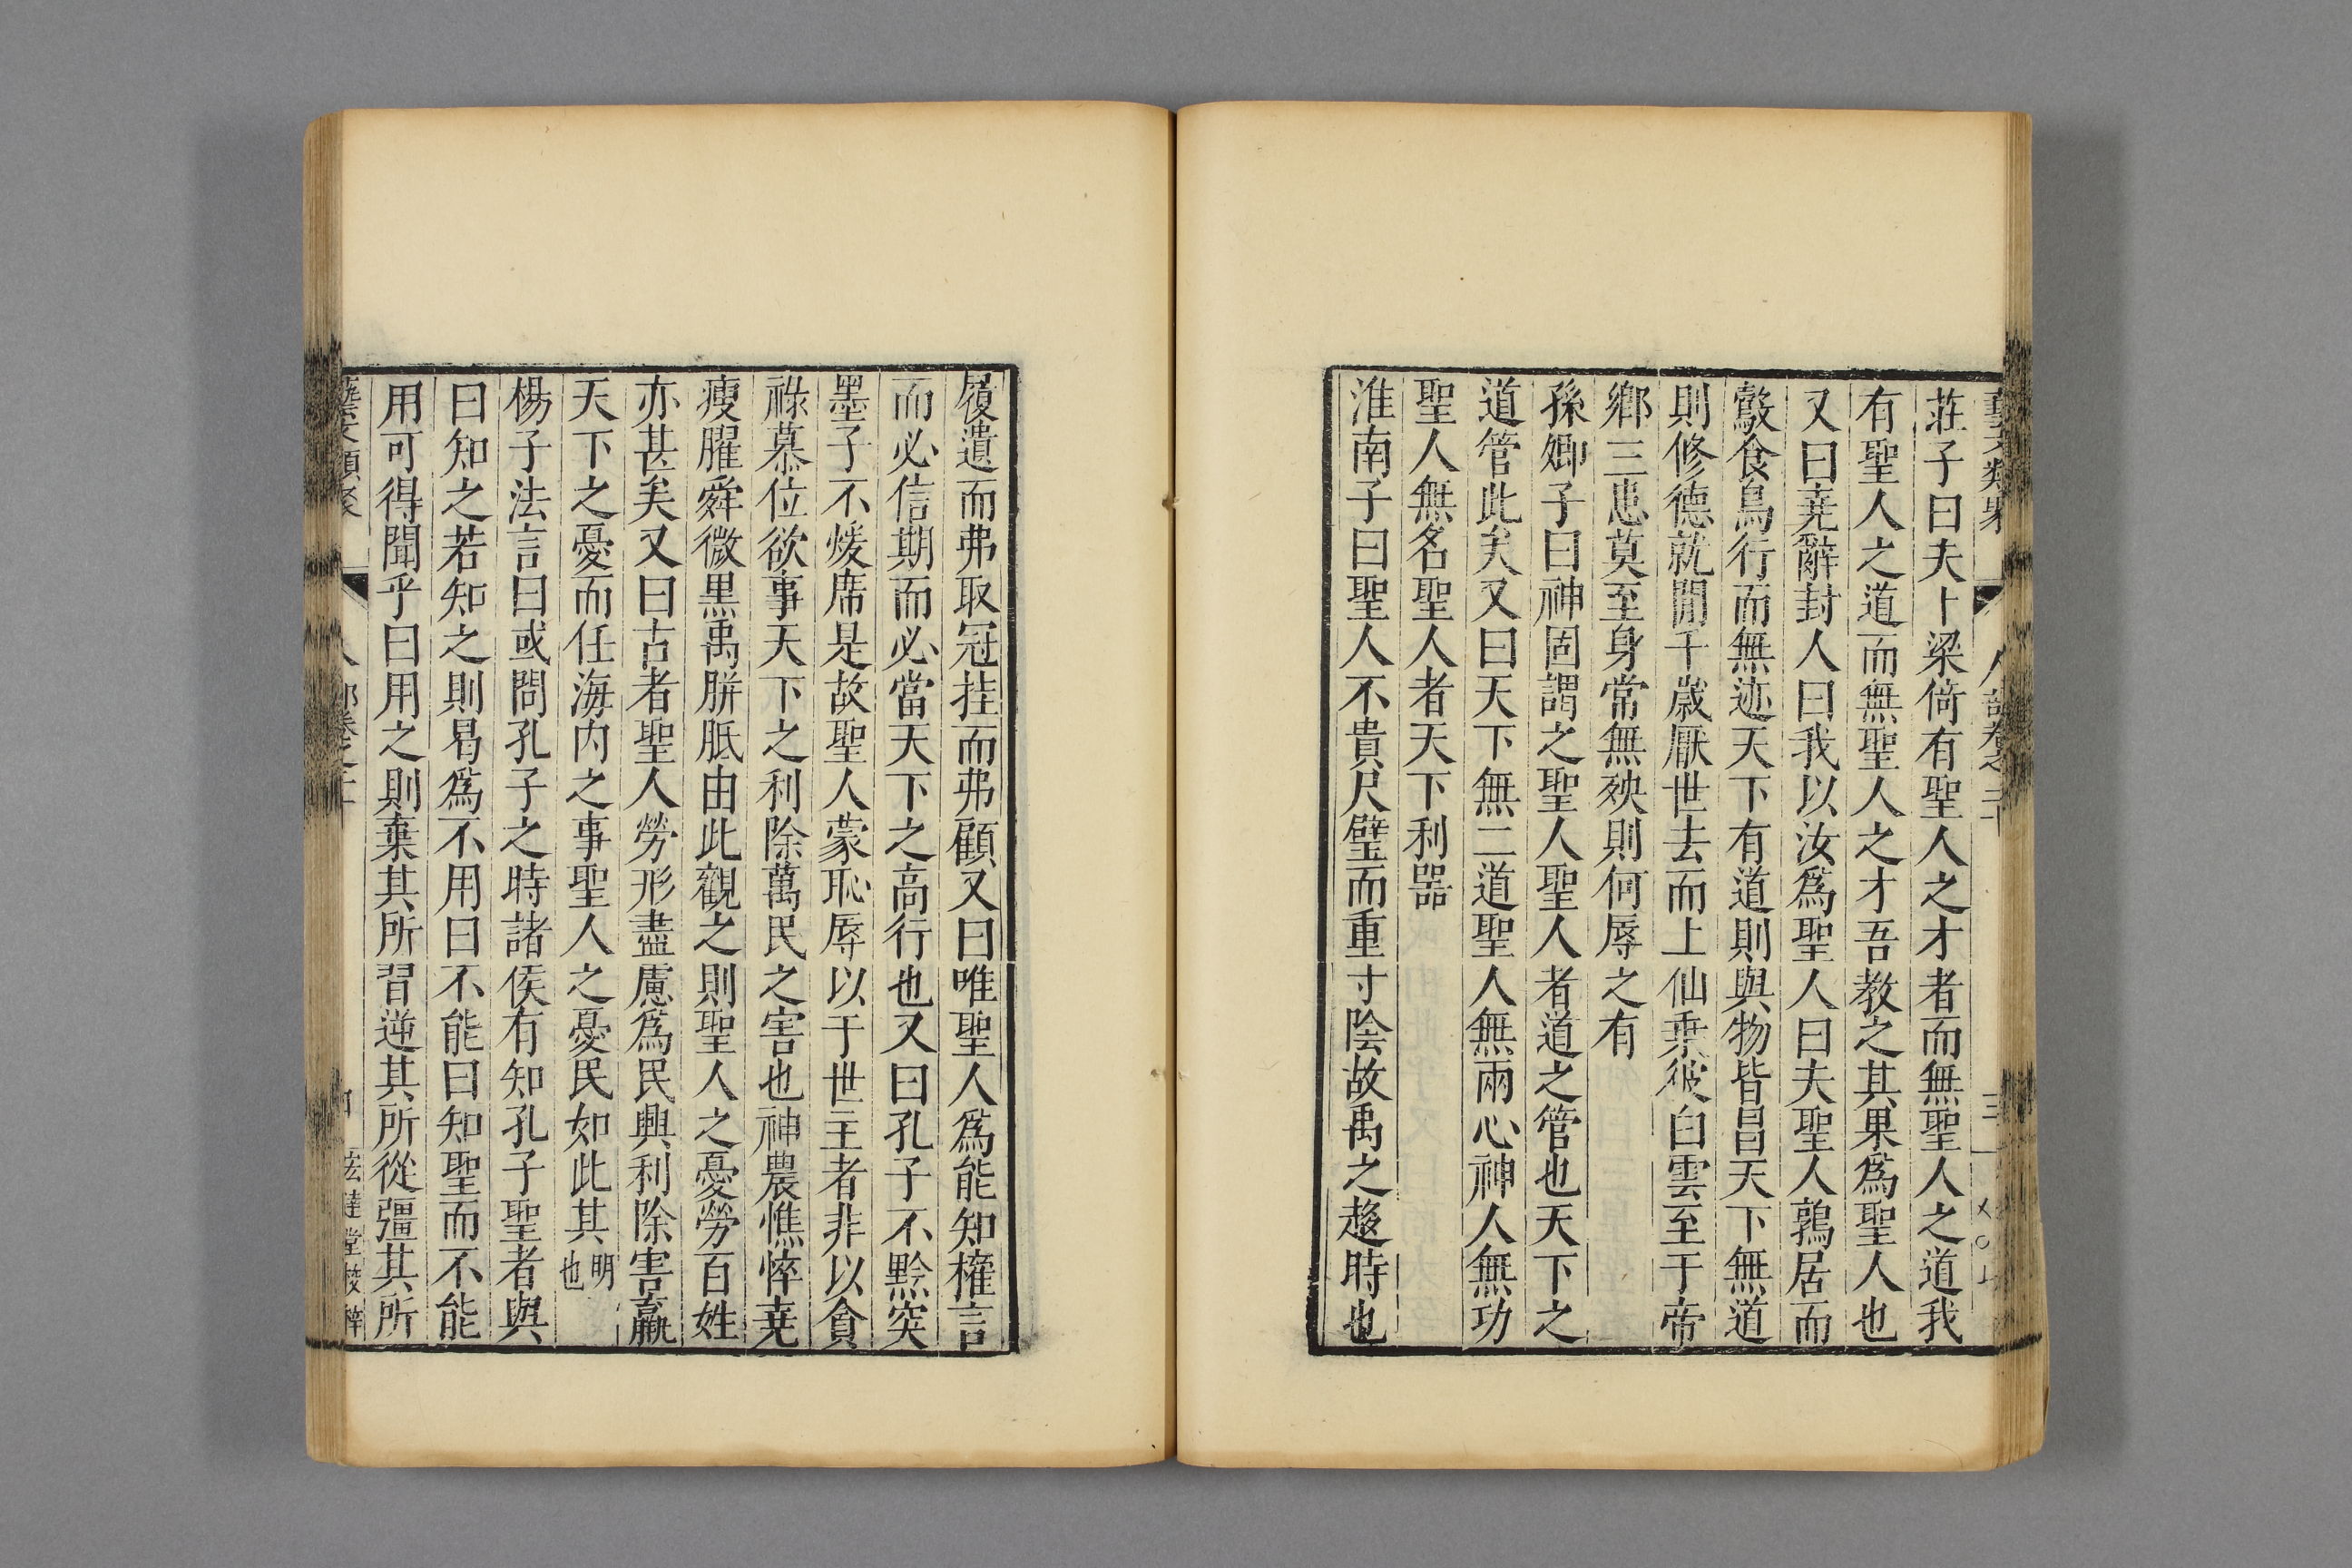 莊子曰夫卜梁倚有聖人之才者而無聖人之道我
有聖人之道而無聖人之才吾教之其果爲聖人也
又曰堯辭封人曰我以汝爲聖人曰夫聖人鶉居而
鷇食鳥行而無迹天下有道則與物皆昌天下無道
則修德就閒千歲厭世去而上仙乗彼白雲至于帝
鄉三患莫至身常無殃則何辱之有
孫卿子曰神固謂之聖人聖人者道之管也天下之
道管此矣又曰天下無二道聖人無兩心神人無功
聖人無名聖人者天下利器
淮南子曰聖人不貴尺璧而重寸陰故禹之趍時也
履遺而弗取冠挂而弗顧又曰唯聖人爲能知權言
而必信期而必當天下之高行也又曰孔子不黔突
墨子不煖席是故聖人蒙恥辱以于世主者非以貪
祿慕位欲事天下之利除萬民之害也神農憔悴堯
瘦臞舜微黒禹胼胝由此觀之則聖人之憂勞百姓
亦甚矣又曰古者聖人勞形盡慮爲民興利除害羸
天下之憂而任海内之事聖人之憂民如此其明也
楊子法言曰或問孔子之時諸侯有知孔子聖者與
曰知之若知之則曷爲不用曰不能曰知聖而不能
用可得聞乎曰用之則棄其所習逆其所從彊其所